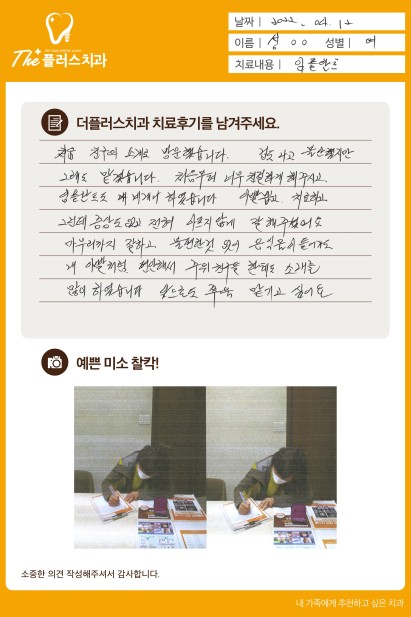 날짜 | 2022. 04. 12
이름 | 성 ○○ 성별 | 여
치료내용 | 임플란트
THE PLUS DENTAL CLINIC
The+ 플러스치과
더플러스치과 치료후기를 남겨주세요.
처음 친구의 소개로 방문했습니다. 겁도 나고 불안했지만
그래도 맡겼습니다. 처음부터 너무 친절하게 해주시고.
임플란트도 몇 개 했습니다
그런데 증상도 없고 전혀 아프지 않게 잘 해주셨어요
마무리까지 잘하고 불편한것 없이 음식물이
내 이빨처럼 편안해서 주위 친구들 한테도 소개를
많이 하였습니다 앞으로도 쭉 맡기고 싶어요
예쁜 미소 찰칵!
소중한 의견 작성해주셔서 감사합니다.
내 가족에게 추천하고 싶은 치과